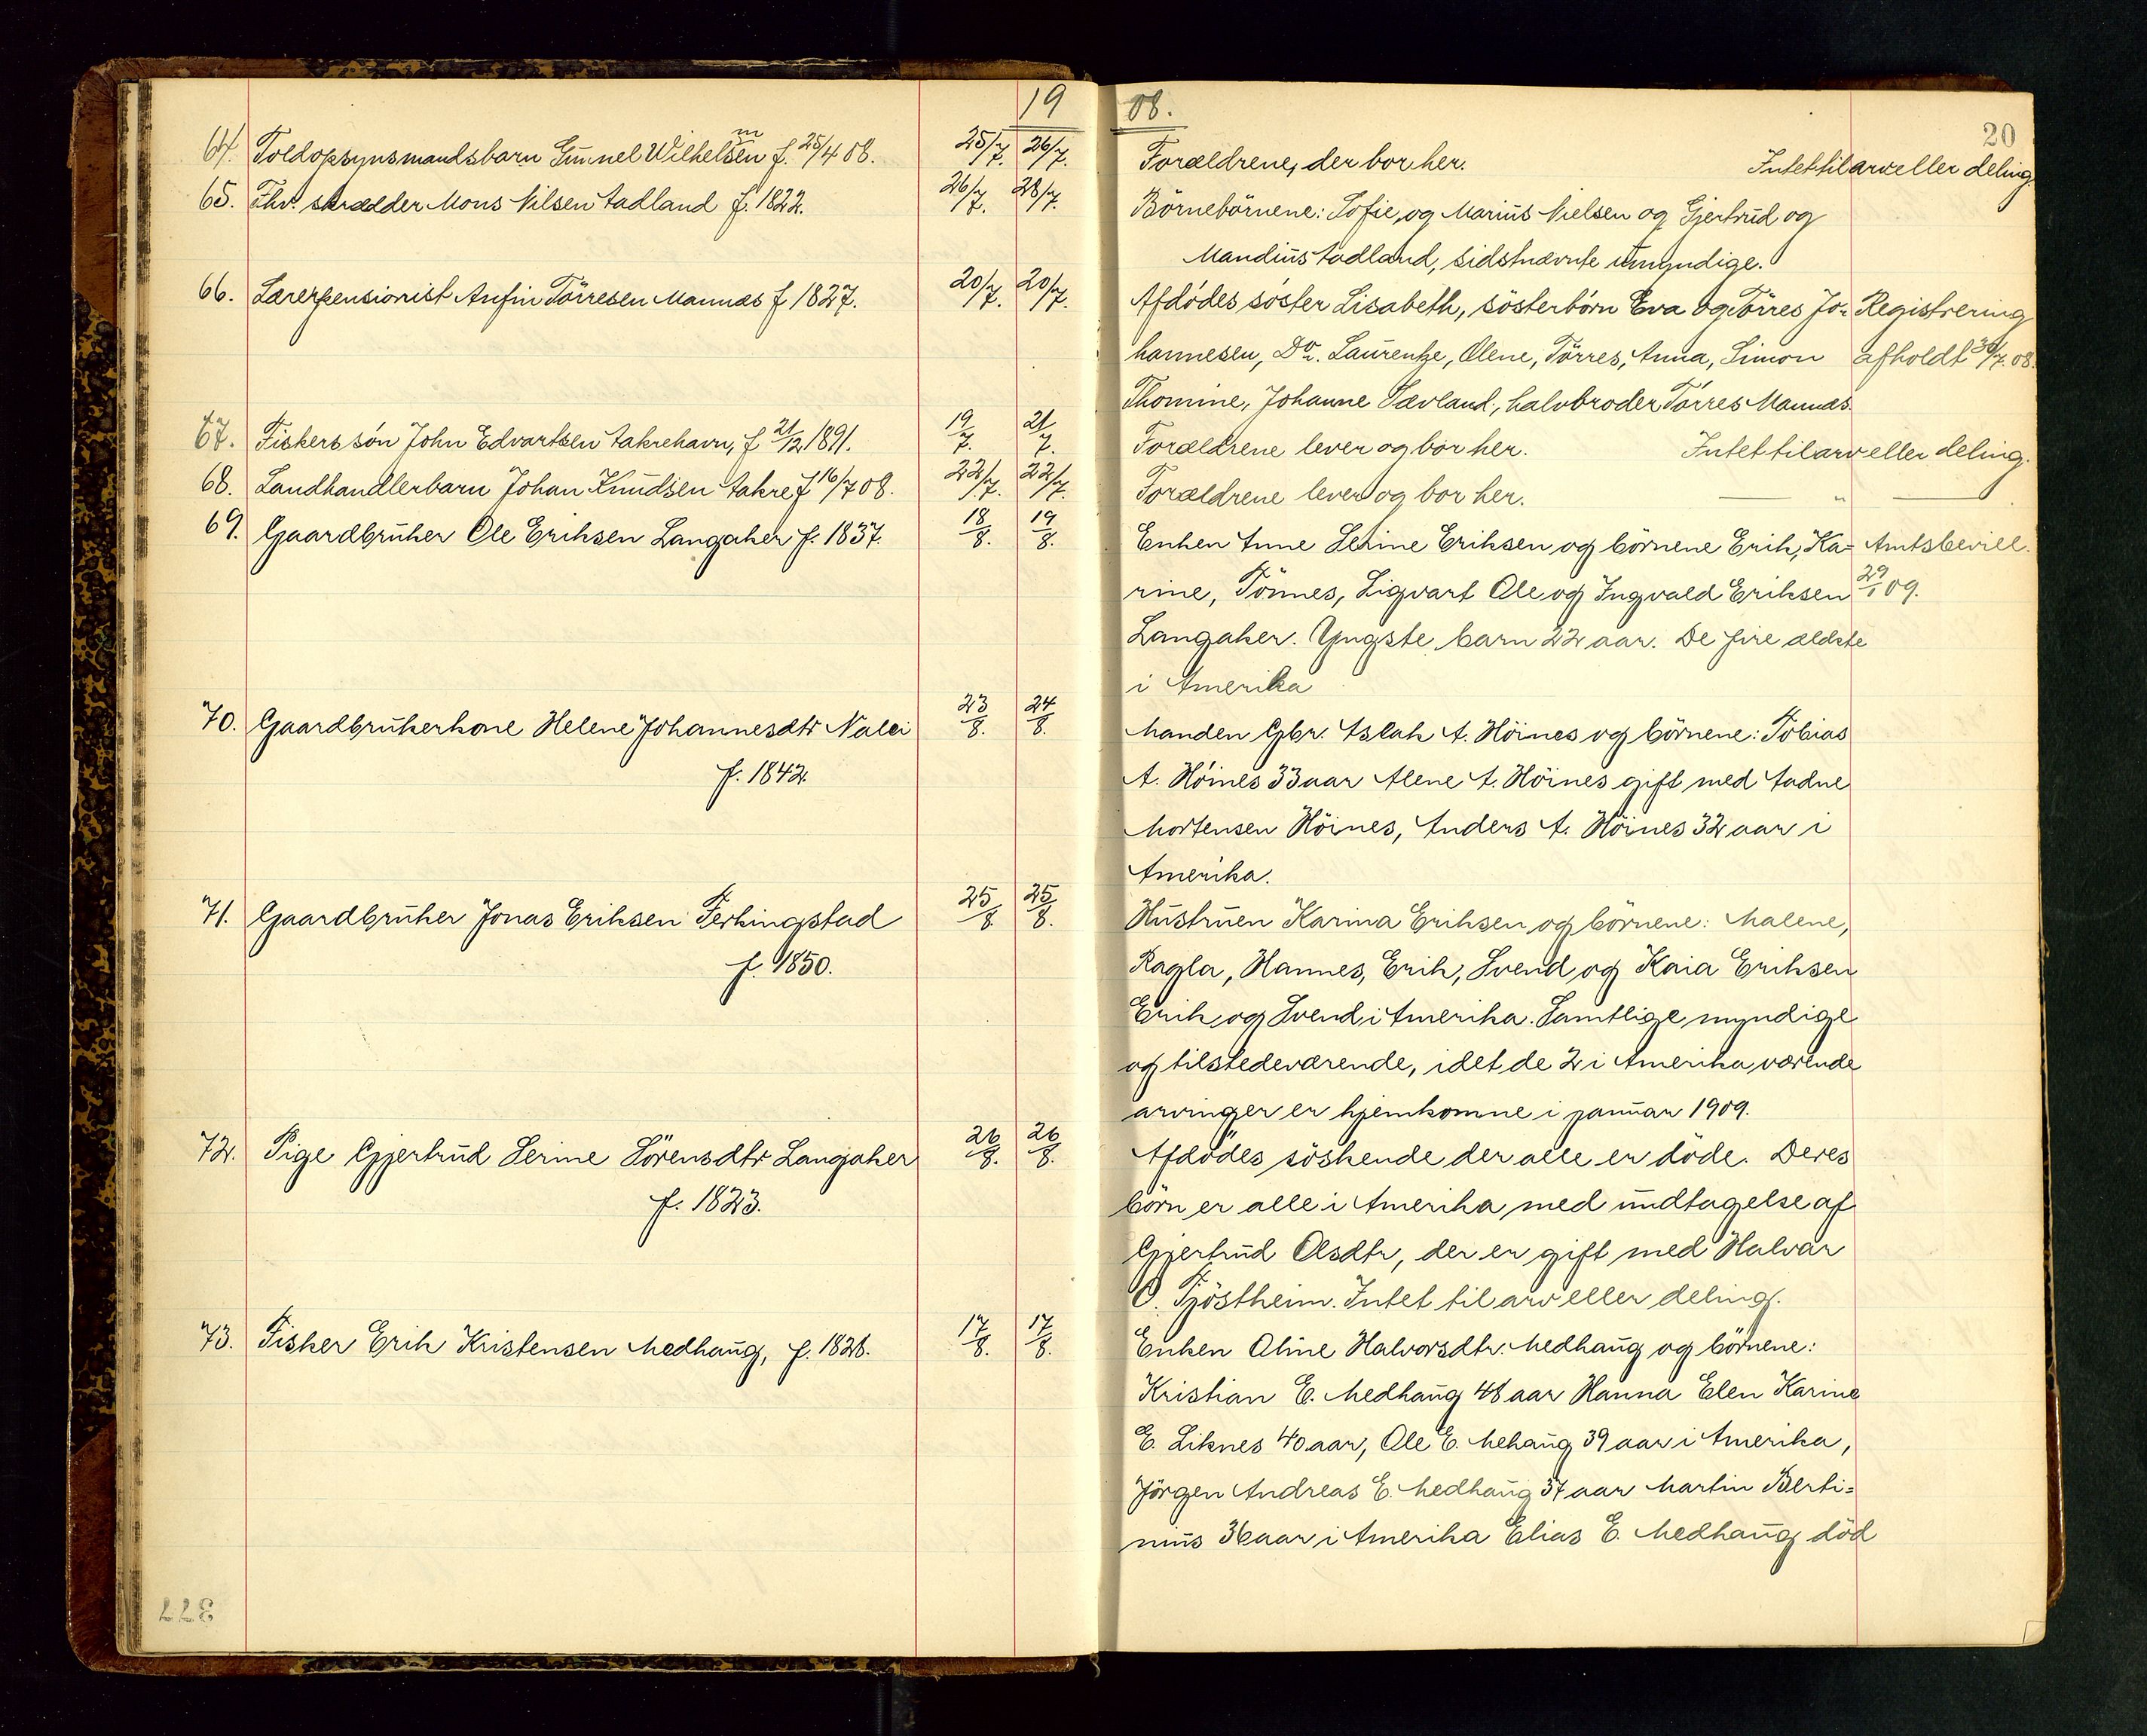 1908.
20
64. Toldopsynsmandsbarn Gunnel Wilhelmsen f. 25/4 08. 25/7. 26/7. Forældrene, der bor her. Intet til arv eller deling.
65. Fhv. skrædder Mons Nilsen Aadland f. 1822. 26/7. 28/7. Börnebörnene: Sofie og Marius Nielsen og Gjertrud og
Mandius Aadland, sidstnævnte umyndige.
66. Lærerpensionist Anfin Törresen Mannæs f 1827. 20/7. 20/7. Afdödes söster Lisabeth, sösterbörn Eva og Törres Jo- Registrering
hannesen, Do. Laurentze, Olene, Törres, Anna, Simon afholdt 30/7. 08.
Thomine, Johanne Sævland, halvbroder Törres Mannæs.
67. Fiskers sön John Edvartsen Aakrehavn, f 21/12 1891. 19/7. 21/7. Forældrene lever og bor her. Intet til arv eller deling.
68. Landhandlerbarn Johan Knudsen Aakre f 16/7 08. 22/7. 22/7. Forældrene lever og bor her. — " —
69. Gaardbruker Ole Eriksen Langaker f. 1837. 18/8. 19/8. Enken Anne Serine Eriksen og börnene Erik, Ka- Amtsbevill.
rine, Tönnes, Sigvart Ole og Ingvald Eriksen 29/1 09.
Langaker. Yngste barn 22 aar. De fire ældste
i Amerika
70. Gaardbrukerkone Helene Johannesdtr Nalei 23/8. 24/8. Manden Gbr. Aslak A. Höines og börnene: Tobias
f. 1842. A. Höines 33 aar Alene A. Höines gift med Aadne
Mortensen Höines, Anders A. Höines 32 aar i
Amerika.
71. Gaardbruker Jonas Eriksen Ferkingstad 25/8. 25/8. Hustruen Karina Eriksen og börnene: Malene,
f. 1850. Ragla, Hannes, Erik, Svend og Kaia Eriksen
Erik og Svend i Amerika. Samtlige myndige
og tilstedeværende, idet de 2 i Amerika værende
arvinger er hjemkomne i januar 1909.
72. Pige Gjertrud Serine Sörensdtr Langaker 26/8. 26/8. Afdödes söskende der alle er döde. Deres
f. 1823. börn er alle i Amerika med undtagelse af
Gjertrud Olsdtr, der er gift med Halvar
O. Tjöstheim. Intet til arv eller deling.
73. Fisker Erik Kristensen Medhaug, f. 1828. 17/8. 17/8. Enken Oline Halvorsdtr. Medhaug og börnene:
Kristian E. Medhaug 48 aar Hanna Elen Karine
E. Liknes 40 aar, Ole E. Mehaug 39 aar i Amerika,
Jörgen Andreas E. Medhaug 37 aar Martin Berti-
nius 36 aar i Amerika Elias E. Medhaug död
377